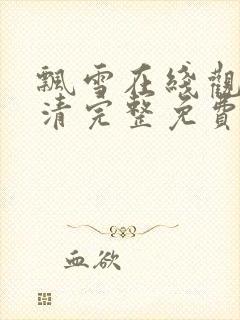 飄雪在綫觀
清完整免費
血欲